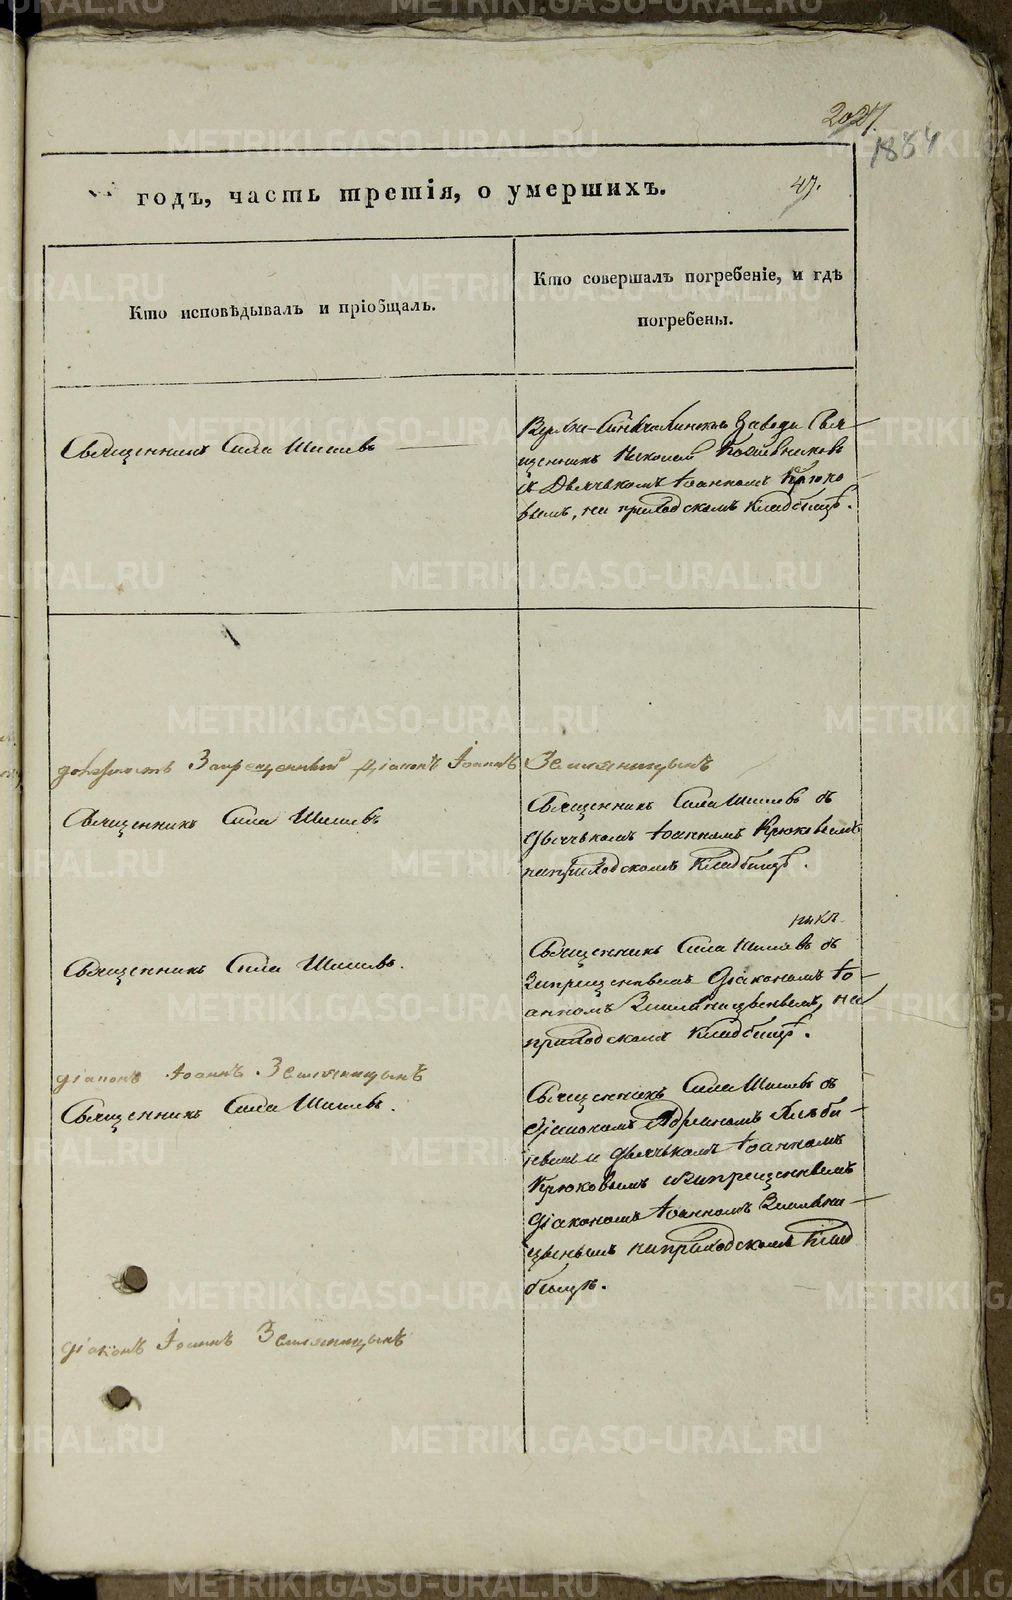 1884
годъ, часть третія, о умершихъ.
47.
Кто исповѣдывалъ и пріобщалъ.
Кто совершалъ погребеніе, и гдѣ
погребены.
Священникъ Сила Шишевъ
Завода Свя-
щенникъ Николай
съ Дьячькомъ Іоанномъ Крюко
вымъ, на приходскомъ кладбищѣ.
должность Запрещенный Діаконъ Іоаннъ Земляницынъ
Священникъ Сила Шишевъ
Священникъ Сила Шишевъ съ
дьячькомъ Іоанномъ Крюковымъ
на приходскомъ кладбищѣ.
Священникъ Сила Шишевъ.
Священникъ Сила Шишевъ съ
Запрещеннымъ Діакономъ Іо-
анномъ Земляницынымъ, на
приходскомъ кладбищѣ.
діаконъ Іоаннъ Земляницынъ
Священникъ Сила Шишевъ.
Священникъ Сила Шишевъ съ
Діакономъ Адріаномъ
и дьячькомъ Іоанномъ
Крюковымъ и Запрещеннымъ
Діакономъ Іоанномъ Земляни-
цынымъ на приходскомъ Клад
бищѣ.
діаконъ Іоаннъ Земляницынъ
METRIKI.GASO-URAL.RU